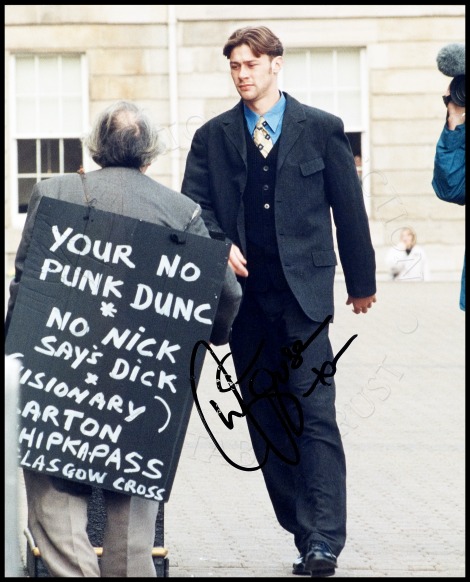 YOUR NO
PUNK DUNC
*
NO NICK
SAY'S DICK
*
ISIONARY)
ARTON
HIPKAPASS
LASGOW CROSS